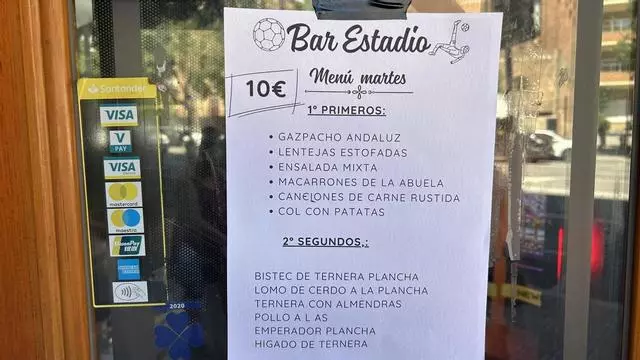 Bar Estadio
Menú martes
10€
1º PRIMEROS:
• GAZPACHO ANDALUZ
• LENTEJAS ESTOFADAS
• ENSALADA MIXTA
• MACARRONES DE LA ABUELA
• CAN€LONES DE CARNE RUSTIDA
• COL CON PATATAS
2º SEGUNDOS,:
BISTEC DE TERNERA PLANCHA
LOMO DE CERDO A LA PLANCHA
TERNERA CON ALMENDRAS
POLLO A L AS
EMPERADOR PLANCHA
HIGADO DE TERNERA
Santander
VISA
V
PAY
VISA
mastercard
maestro
UnionPay
2020